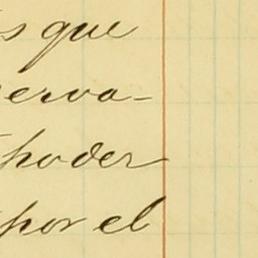 s que
erva-
poder
por el